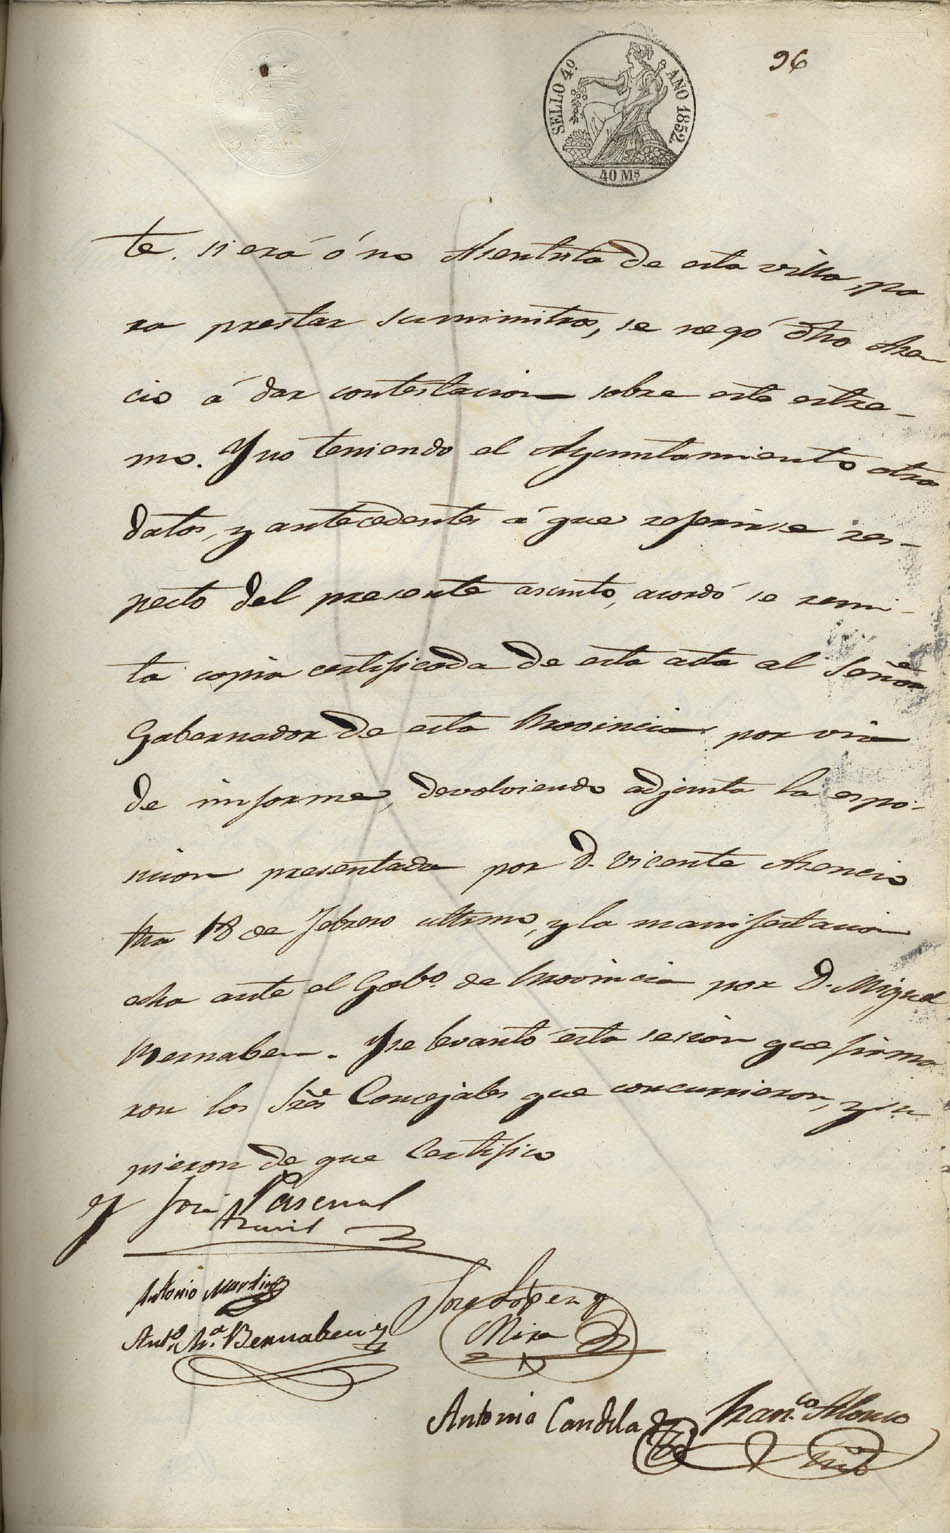 96
SELLO 4º AÑO 1852.
40 Ms
te, si erá ó no Asentista de esta villa, pa
ra prestar suministros, se negó dho Asen
cio á dar contestacion sobre este estre-
mo. Y no teniendo el Ayuntamiento otros
datos, y antecedentes á que referirse res-
pecto del presente asunto, acordó se remi-
ta copia certificada de esta acta al Señor
Gobernador de esta Provincia por via
de informe, devolviendo adjunta la espo-
sicion presentada por D. Vicente Asencio
18 de Febrero ultimo, y la manifestacion
echa ante el Gobº. de Provincia por D. Miguel
Bernabeu. Y se levantó esta sesion que firma
ron los Sres Concejales que concurrieron, y su
pieron de que Certifico
José Pascual
Antonio Martinez
Antº. Mª. Bernabeu y
José Lopez y
Mira
Antonio Candela
Franco. Alonso